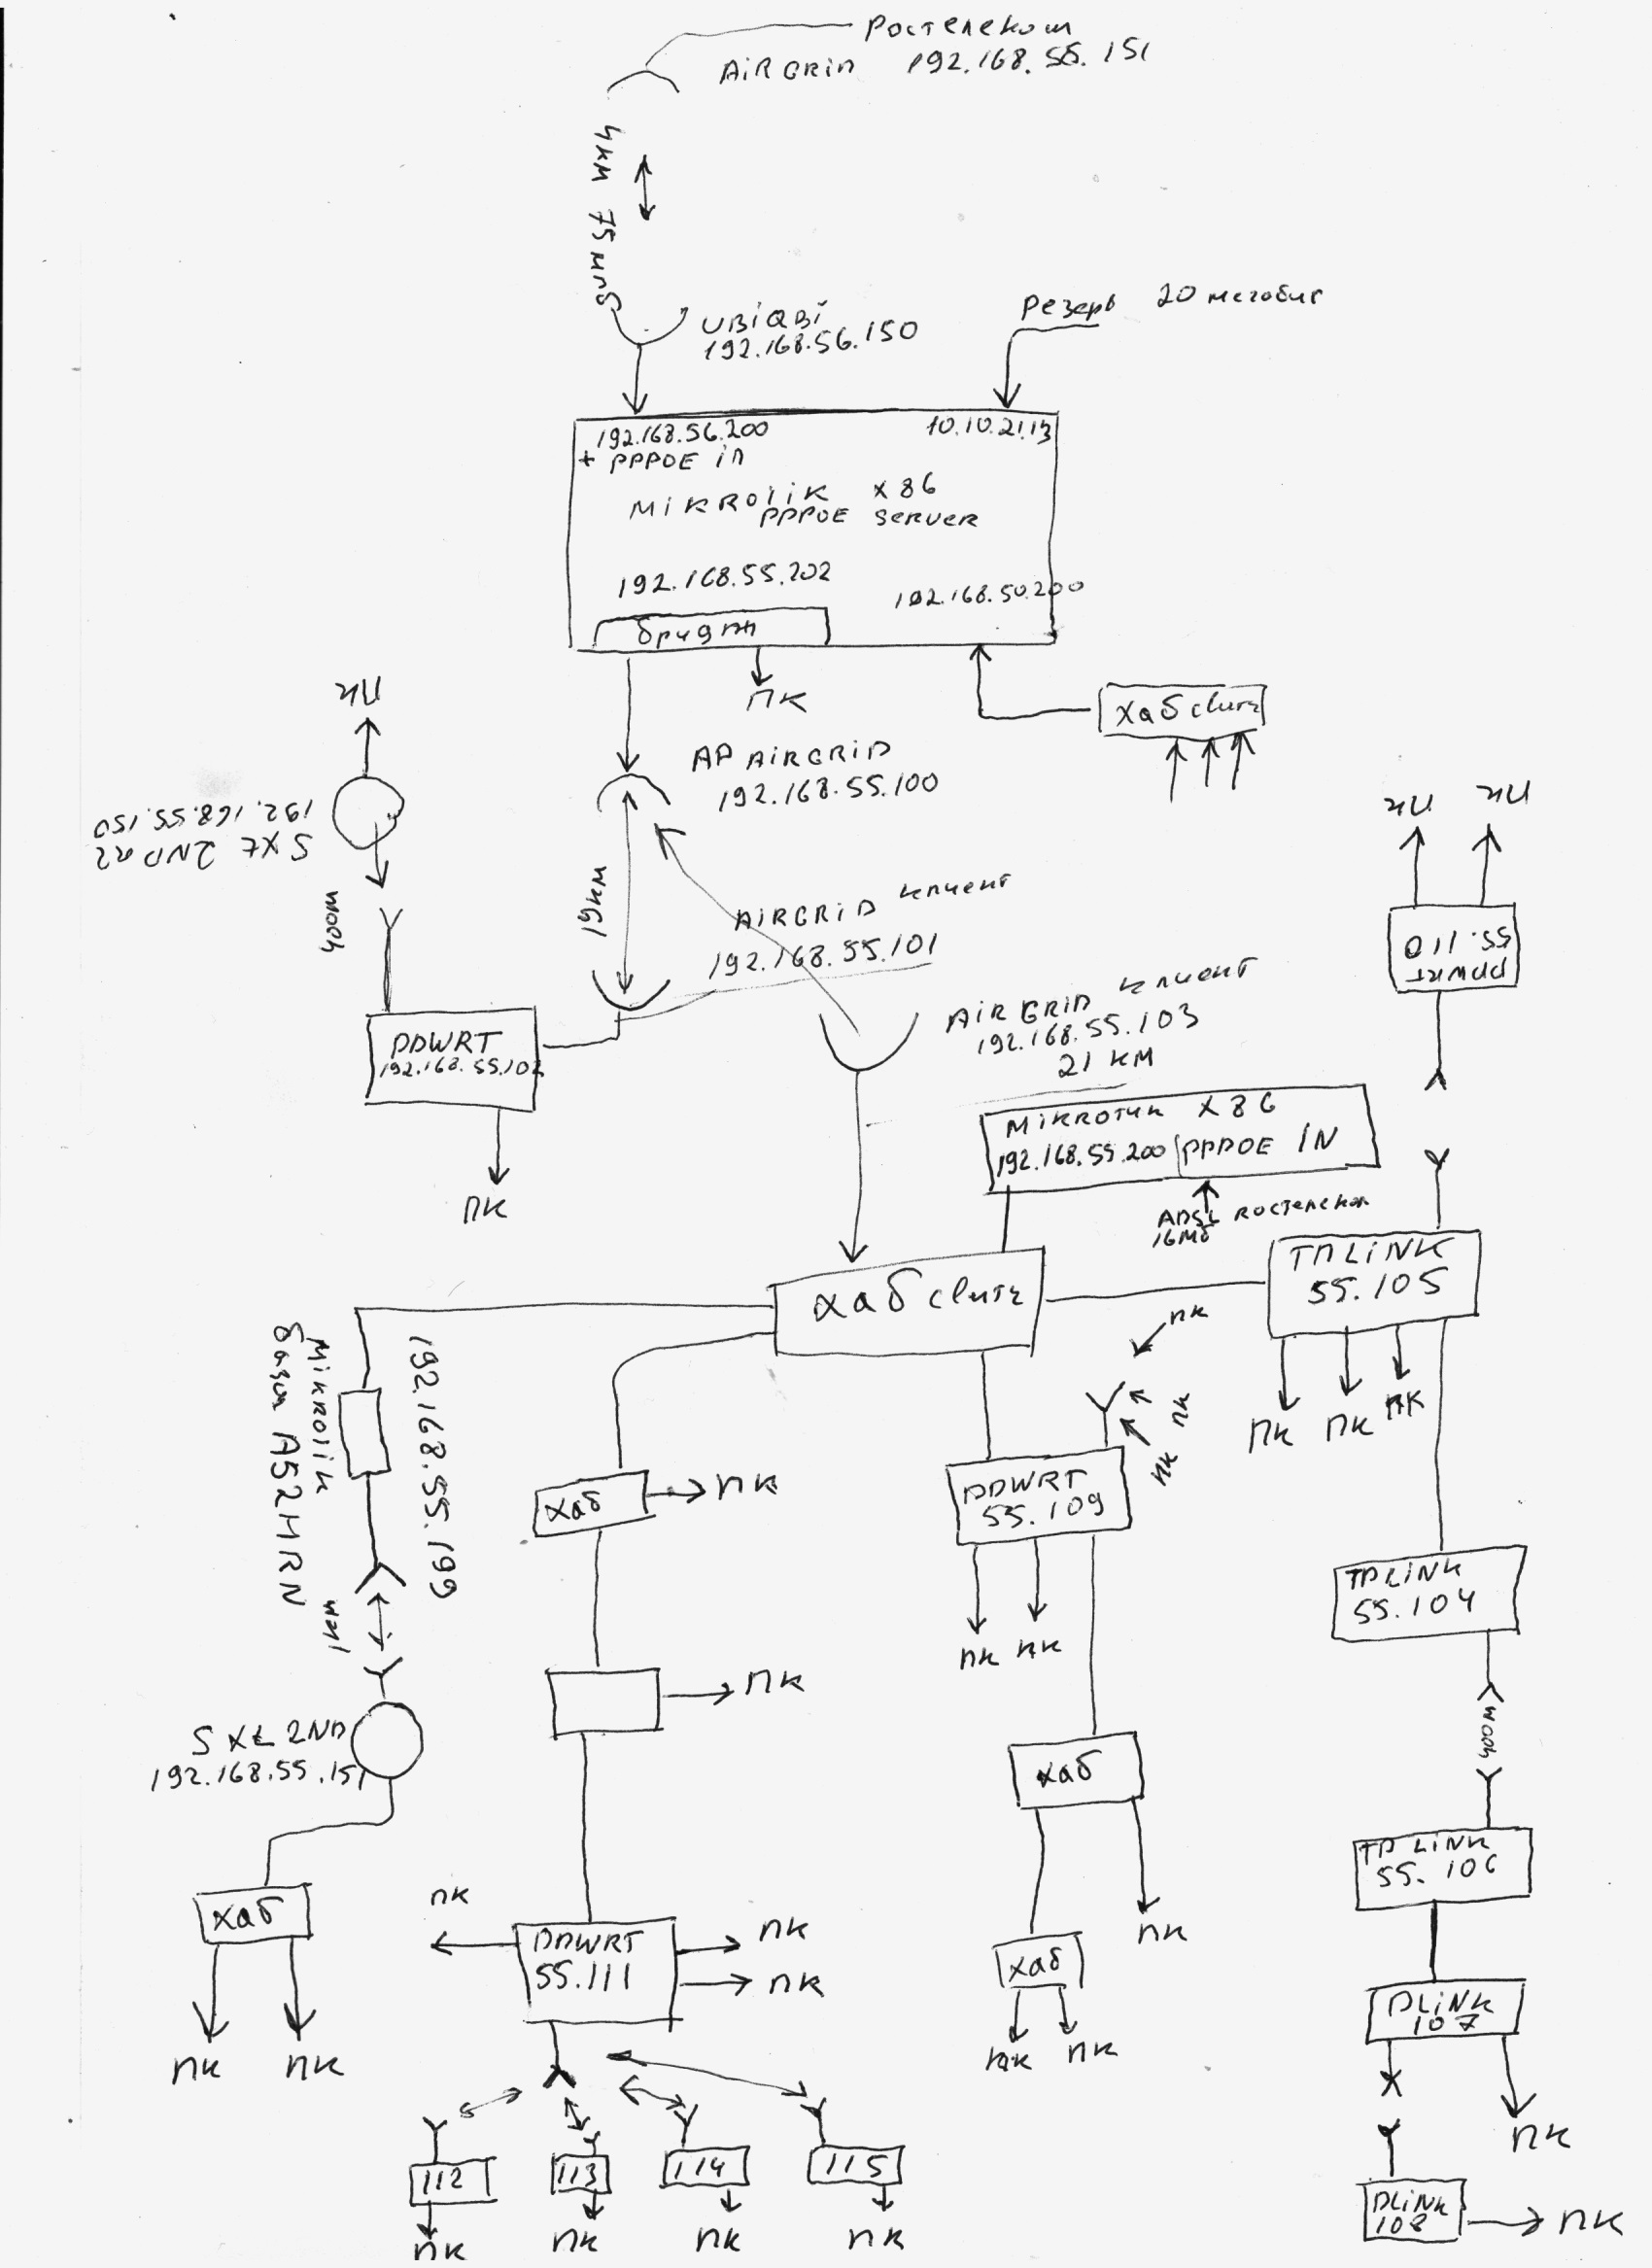 Ростелеком
AiR GRiD 192.168.56.151
4км 75 мгб
UBiQBi
192.168.56.150
Резерв 20 мегабит
192.168.56.200
+ PPPOE in
10.10.21.13
MiKROTiK X86
PPPOE SERVER
192.168.55.202
192.168.50.200
бридж
ПК
хаб свитч
AP AiRGRiD
192.168.55.100
ПК
SXT 2ND r2
192.168.55.150
400м
19км
AiRGRiD клиент
192.168.55.101
DDWRT
192.168.55.102
ПК
AiR GRiD клиент
192.168.55.103
21 КМ
ПК
ПК
DDWRT
55.110
MiKROТИК X86
192.168.55.200 PPPOE IN
ADSL Ростелеком
16Мб
хаб свитч
TPLiNK
55.105
ПК
ПК
ПК
192.168.55.199
MiKROTiK
база A52HRN
1км
SXT 2ND
192.168.55.151
хаб
ПК
ПК
хаб
ПК
ПК
DDWRT
55.111
ПК
ПК
ПК
112
113
114
115
ПК
ПК
ПК
ПК
ПК
ПК
ПК
DDWRT
55.109
ПК
ПК
хаб
ПК
хаб
ПК
ПК
TPLiNK
55.104
400м
TPLiNK
55.106
DLiNK
107
ПК
DLiNK
108
ПК